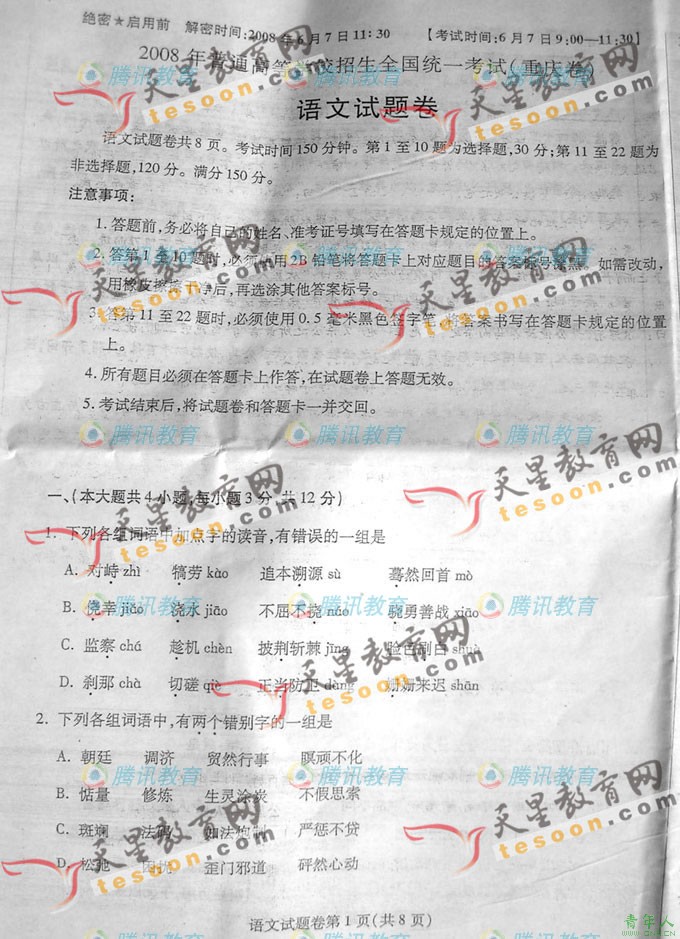 绝密★启用前 解密时间:2008年6月7日11:30 【考试时间:6月7日9:00—11:30】
2008年普通高等学校招生全国统一考试(重庆卷)
语文试题卷
语文试题卷共8页。考试时间150分钟。第1至10题为选择题,30分;第11至22题为
非选择题,120分。满分150分。
注意事项:
1.答题前,务必将自己的姓名、准考证号填写在答题卡规定的位置上。
2.答第1至10题时,必须使用2B铅笔将答题卡上对应题目的答案标号涂黑。如需改动,
用橡皮擦擦干净后,再选涂其他答案标号。
3.答第11至22题时,必须使用0.5毫米黑色签字笔,将答案书写在答题卡规定的位置
上。
4.所有题目必须在答题卡上作答,在试题卷上答题无效。
5.考试结束后,将试题卷和答题卡一并交回。
一、(本大题共4小题,每小题3分,共12分)
1. 下列各组词语中加点字的读音,有错误的一组是
A. 对峙 zhì 犒劳 kào 追本溯源 sù 蓦然回首 mò
B. 侥幸 jiǎo 浇水 jiāo 不屈不挠 náo 骁勇善战 xiāo
C. 监察 chá 趁机 chèn 披荆斩棘 jīng 脸色刷白 shuà
D. 刹那 chà 切磋 qiē 正当防卫 dàng 姗姗来迟 shān
2. 下列各组词语中,有两个错别字的一组是
A. 朝廷 调济 贸然行事 瞑顽不化
B. 惦量 修炼 生灵涂炭 不假思索
C. 斑斓 法码 如法炮制 严惩不贷
D. 松弛 困扰 歪门邪道 砰然心动
语文试题卷第1页(共8页)
天星教育网
tesoon.com
腾讯教育
青年人